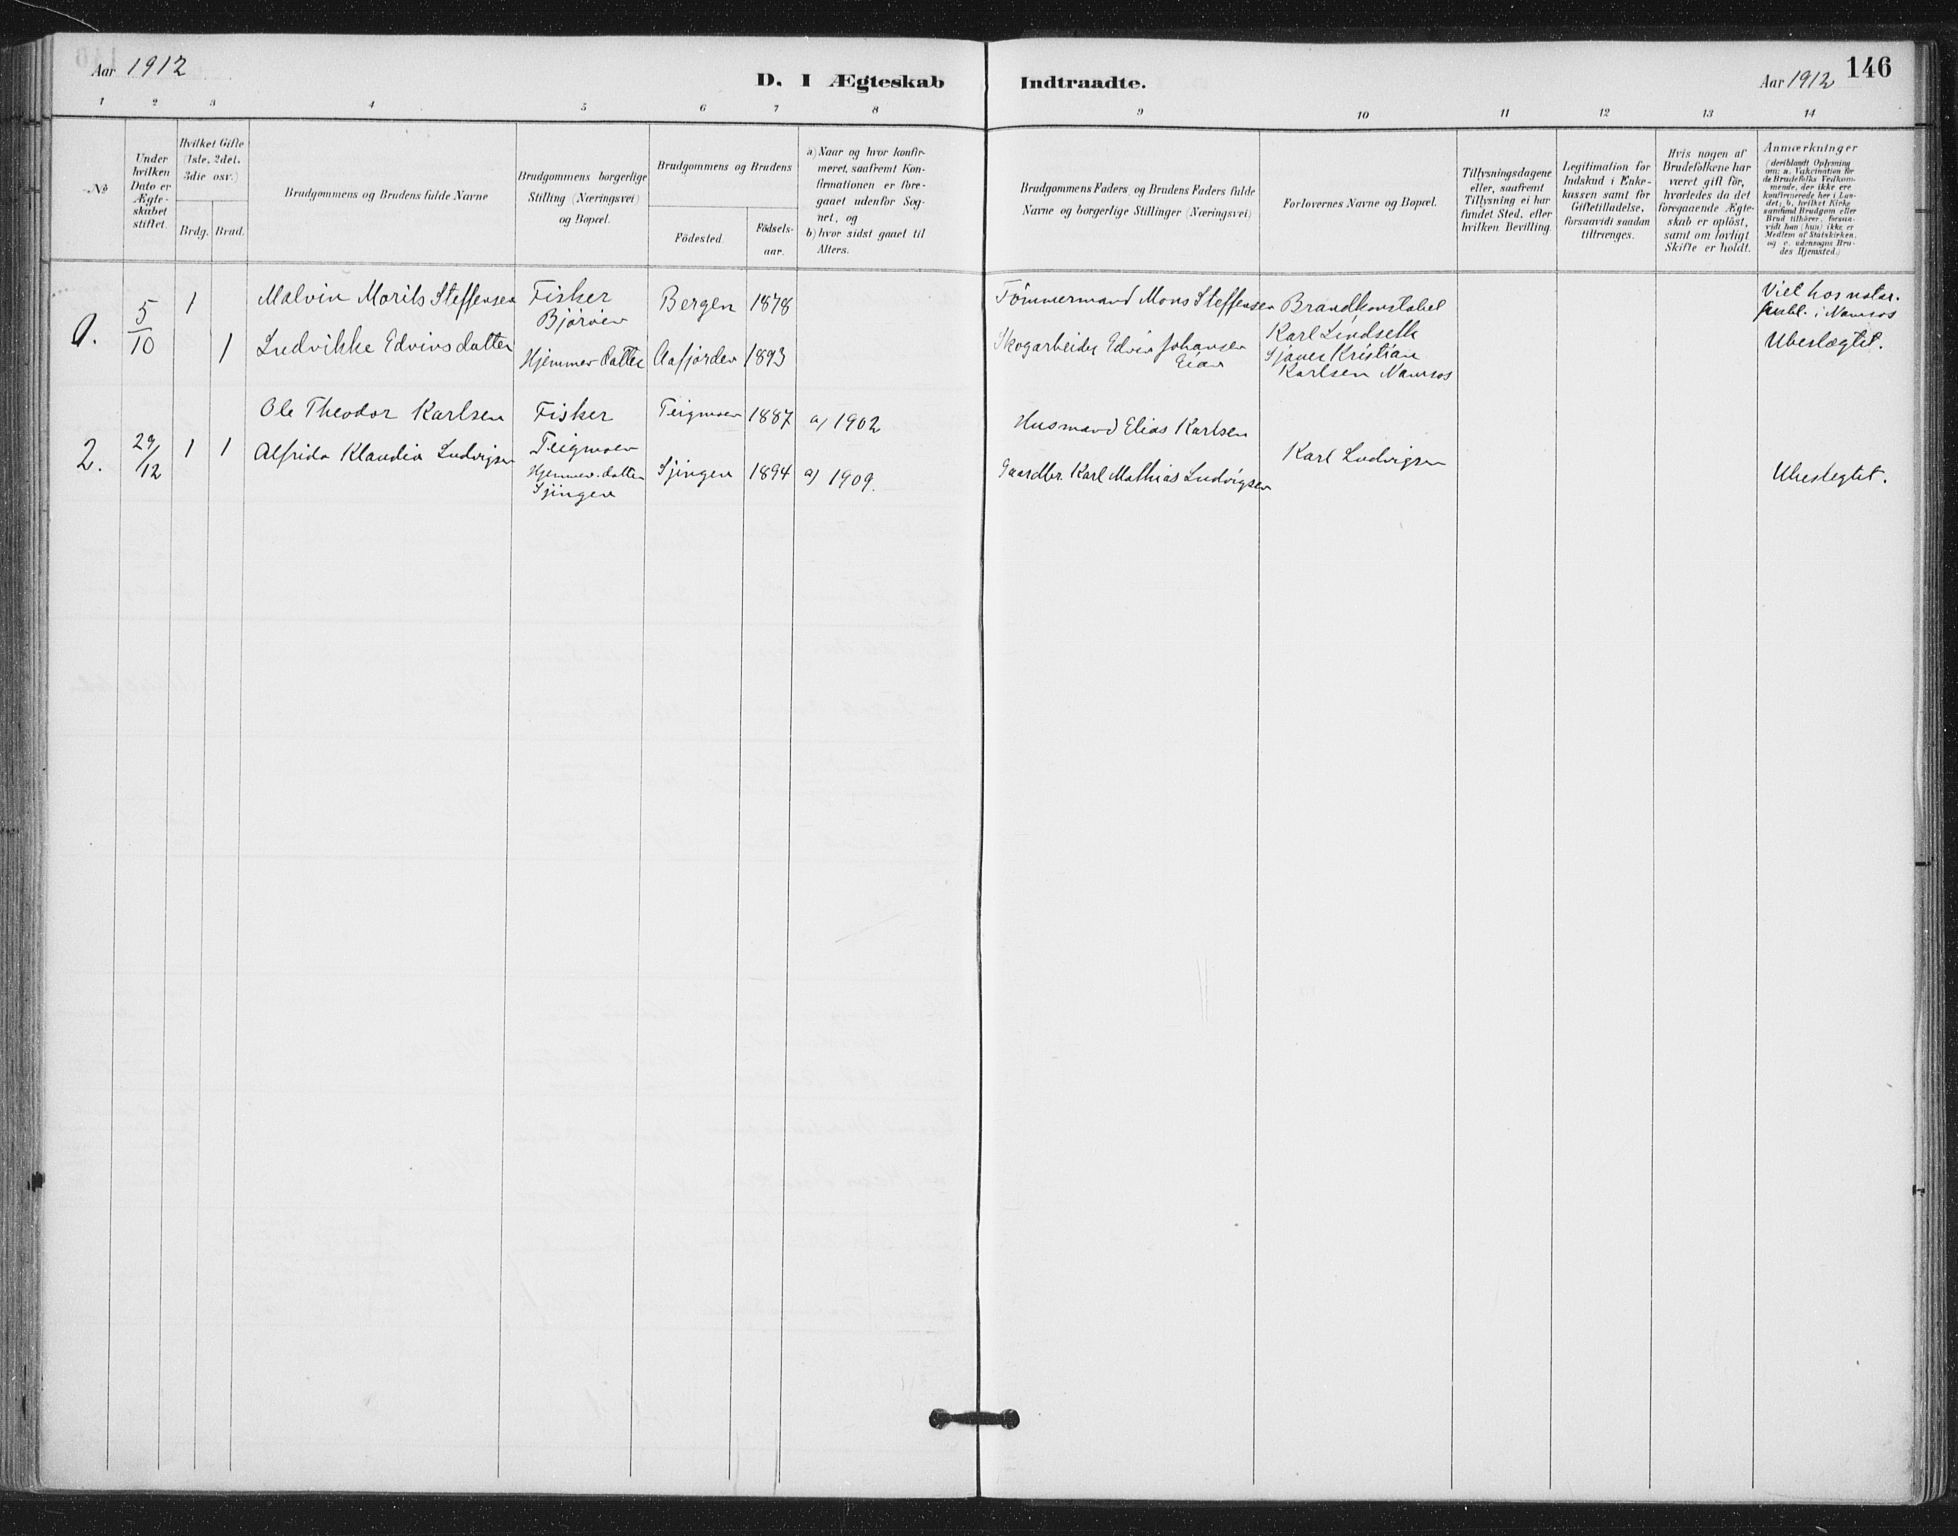 Aar 1912
D. I Ægteskab
Indtraadte.
Aar 1912
146
1 2 3 4 5 6 7 8 9 10 11 12 13 14
No
Under
hvilken
Dato er
Ægte-
skabet
stiftet.
Hvilket Gifte
(1ste, 2det,
3die osv.)
Brdg.
Brud.
Brudgommens og Brudens fulde Navne
Brudgommens borgerlige
Stilling (Næringsvei)
og Bopæl.
Brudgommens og Brudens
Födested.
Födsels-
aar.
a) Naar og hvor konfir-
meret, saafremt Kon-
firmationen er fore-
gaaet udenfor Sog-
net, og
b) hvor sidst gaaet til
Alters.
Brudgommens Faders, og Brudens Faders fulde
Navne og borgerlige Stillinger (Næringsvei)
Forlovernes Navne og Bopæl.
Tillysningsdagene
eller, saafremt
Tillysning ei har
fundet Sted, efter
hvilken Bevilling.
Legitimation for
Indskud i Enke-
kassen samt for
Giftetilladelse,
forsaavidt saadan
tiltrænges.
Hvis nogen af
Brudefolkene har
været gift för,
hvorledes da det
foregaaende Ægte-
skab er oplöst,
samt om lovligt
Skifte er holdt.
Anmærkninger
(deriblandt Oplysning
om: a. Vaccination for
de Brudefolks Vedkom-
mende, der ikke ere
konfirmerede her i Lan-
det; b. hvilket Kirke-
samfund Brudgom eller
Brud tilhörer, forsaa-
vidt han (hun) ikke er
Medlem af Statskirken,
og c. udensogns Bru-
des Hjemsted.)
1.
5/10
1
Malvin Morits Steffensen
Fisker
Bjørøen
Bergen
1878
Tömmermand Mons Steffensen
Brandkonstabel
Karl Lindseth
Viet hos notar.
publ. i Namsos
1
Ludvikke Edvinsdatter
Hjemmev. datter
Aafjorden
1893
Skogarbeider Edvin Johansen
Sjauer Kristian
Karlsen Namsos
Ubeslægtet.
2.
29/12
1 1
Ole Theodor Karlsen
Fisker
Teigmoen
Teigmoen
1887
a) 1902
Husmand Elias Karlsen
Karl Ludvigsen
Alfrida Klaudia Ludvigsen
Hjemmev. datter
Sjingen
Sjingen
1894
a) 1909.
Gaardbr. Karl Mathias Ludvigsen
Ubeslegtet.